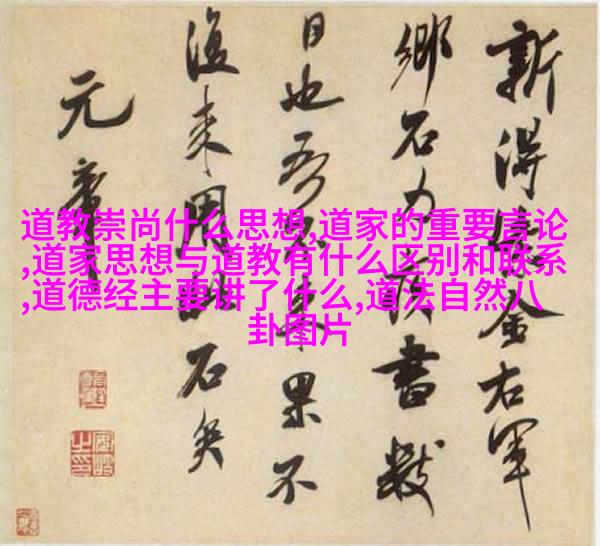 道教崇尚什么思想,道家的重要言论
,道家思想与道教有什么区别和联系
,道德经主要讲了什么,道法自然八
卦图片
新得金右軍
鄉石力疾書數
日也吾來果不
復來用此石矣
元章